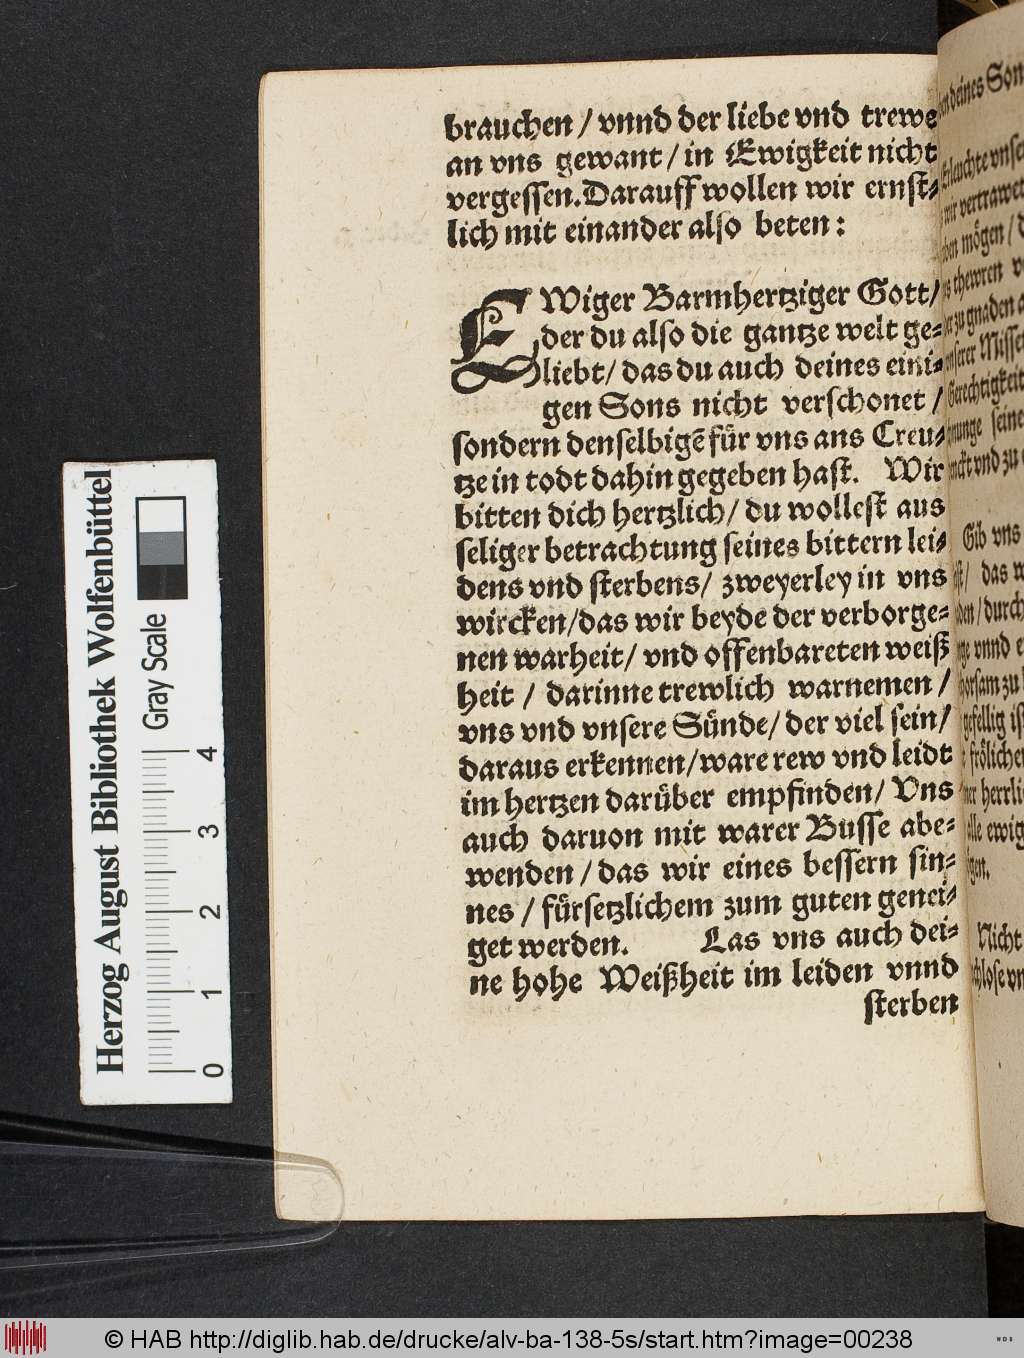 brauchen / vnnd der liebe vnd trewe
an vns gewant / in Ewigkeit nicht
vergessen. Darauff wollen wir ernst⸗
lich mit einander also beten :
EWiger Barmhertziger Gott /
der du also die gantze welt ge⸗
liebt / das du auch deines eini⸗
gen Sons nicht verschonet /
sondern denselbigẽ für vns ans Creu⸗
tze in todt dahin gegeben hast. Wir
bitten dich hertzlich / du wollest aus
seliger betrachtung seines bittern lei⸗
dens vnd sterbens / zweyerley in vns
wircken / das wir beyde der verborge⸗
nen warheit / vnd offenbareten weiß
heit / darinne trewlich warnemen /
vns vnd vnsere Sünde / der viel sein /
daraus erkennen / ware rew vnd leidt
im hertzen darüber empfinden / Vns
auch daruon mit warer Busse abe⸗
wenden / das wir eines bessern sin⸗
nes / fürsetzlichem zum guten genei⸗
get werden. Las vns auch dei⸗
ne hohe Weißheit im leiden vnnd
sterben
deines Son
vnd zu
Gib vns
/ das
/ durch
vnnd
gefellig
alle ewig
Nicht
Herzog August Bibliothek Wolfenbüttel
Gray Scale
4
3
2
1
0
© HAB http://diglib.hab.de/drucke/alv-ba-138-5s/start.htm?image=00238